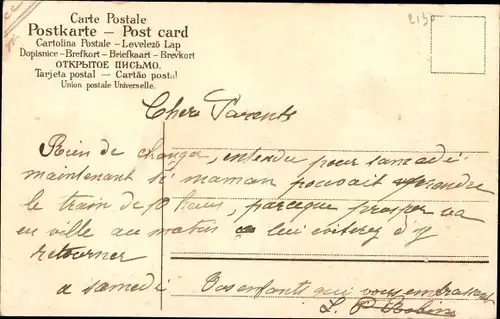 Carte Postale
Postkarte – Post card
Cartolina Postale – Levelező Lap
Dopisnice – Brefkort – Briefkaart – Brevkort
ОТКРЫТОЕ ПИСЬМО.
Tarjeta postal – Cartão postal
Union postale Universelle.
Chers Parents
Rien de changer, entendu pour samedi
maintenant si maman pouvait prendre
le train de 10 heures, parceque prosper va
en ville au matin lui éviterez d'y
retourner
a samedi Vos enfants qui vous embrassent
L. P Robin